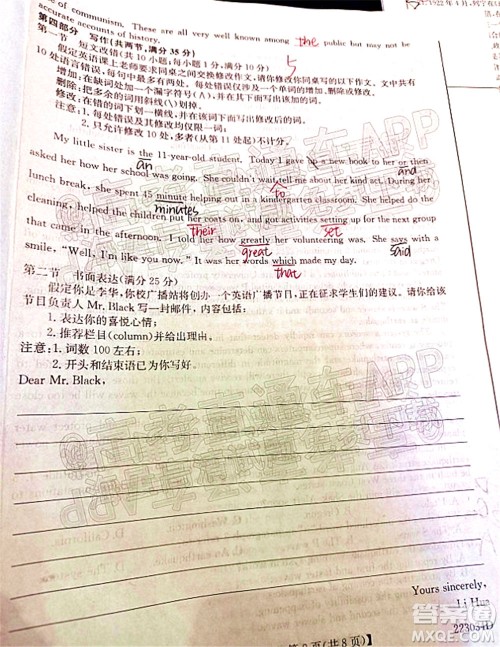 of communism. These are all very well known among the public but may not be
accurate accounts of history.
1922年4月,列宁在
第四部分 写作(共两节,满分35分)
5
第一节 短文改错(共10小题;每小题1分,满分10分)
假定英语课上老师要求同桌之间交换修改作文,请你修改你同桌写的以下作文。文中共有
10处语言错误,每句中最多有两处。每处错误仅涉及一个单词的增加、删除或修改。
增加:在缺词处加一个漏字符号(∧),并在其下面写出该加的词。
删除:把多余的词用斜线(\)划掉。
修改:在错的词下划一横线,并在该词下面写出修改后的词。
注意:1. 每处错误及其修改均仅限一词;
2. 只允许修改10处,多者(从第11处起)不计分。
My little sister is the 11-year-old student. Today I gave up a new book to her or then
an
and
asked her how her school was going. She couldn't wait tell me about her kind act. During her
to
lunch break, she spent 45 minute helping out in a kindergarten classroom. She helped do the
minutes
cleaning, helped the children put her coats on, and got activities setting up for the next group
their
set
that came in the afternoon. I told her how greatly her volunteering was. She says with a
great
said
smile, "Well, I'm like you now." It was her words which made my day.
that
第二节 书面表达(满分25分)
假定你是李华,你校广播站将创办一个英语广播节目,正在征求学生们的建议。请你给该
节目负责人Mr. Black写一封邮件,内容包括:
1. 表达你的喜悦心情;
2. 推荐栏目(column)并给出理由。
注意:1. 词数100左右;
2. 开头和结束语已为你写好。
Dear Mr. Black,
Yours sincerely,
Li Hua
223034D
(共8页)】
@高考直通车APP
答案圈
MXQE.COM